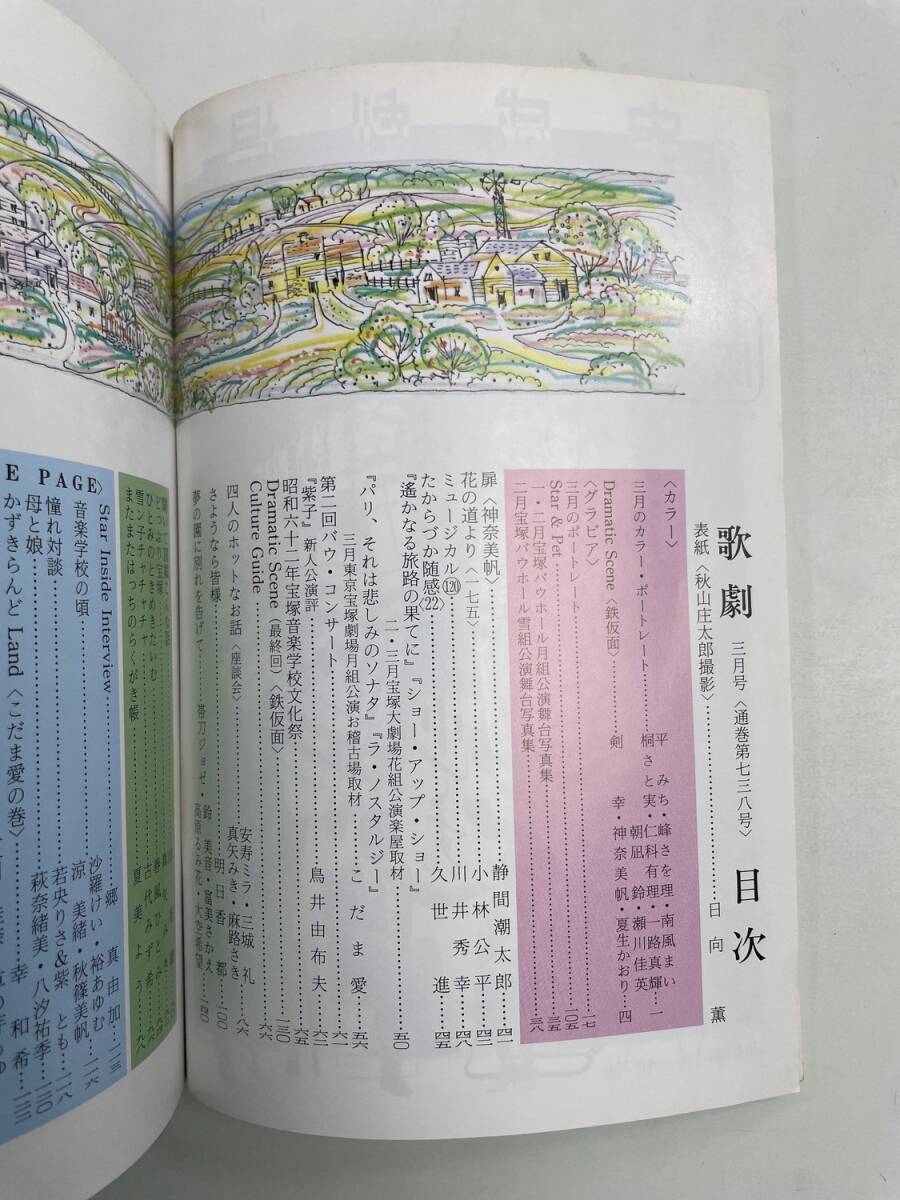 歌劇 三月号〈通巻第七三八号〉 目次
表紙〈秋山庄太郎撮影〉……日向 薫
〈カラー〉
三月のカラー・ポートレート……平 みち・峰さを理・南風まい 一
桐さと実・仁科有理・一路真輝
朝凪 鈴・瀬川佳英
Dramatic Scene〈鉄仮面〉……剣 幸・神奈美帆・夏生かおり 四
〈グラビア〉
三月のポートレート……一七
Star & Pet……一〇五
一・二月宝塚バウホール月組公演舞台写真集……三五
二月宝塚バウホール雪組公演舞台写真集……三八
扉〈神奈美帆〉……静間潮太郎……四一
花の道より〈一七五〉……小林公平……四三
ミュージカル(120)……川井秀幸……四八
たからづか随感〈22〉……久世 進……四五
『遙かなる旅路の果てに』『ショー・アップ・ショー』
二・三月宝塚大劇場花組公演楽屋取材……五〇
『パリ、それは悲しみのソナタ』『ラ・ノスタルジー』
三月東京宝塚劇場月組公演お稽古場取材……こだま 愛……五六
第二回バウ・コンサート……六一
『紫子』新人公演評……鳥井由布夫……六二
昭和六十二年宝塚音楽学校文化祭……六五
Dramatic Scene(最終回)〈鉄仮面〉……一三〇
Culture Guide……六六
四人のホットなお話〈座談会〉……安寿ミラ・三城 礼
真矢みき・麻路さき……八六
さようなら皆様……明日香 都……一〇〇
夢の園に別れを告げて……帯刀ジョゼ・高原るみ花・大空希望
鈴 美音・富美さかえ……一四〇
ひとみのときめきたいむ……春風ひとみ
雪ン子チャチャチャ……古代みず希
またまたはっちのらくがき帳……夏 美よう……九八
E PAGE〉
Star Inside Interview……郷 真由加……一一三
音楽学校の頃……沙羅けい・裕あゆむ
涼 美緒・秋篠美帆……一一六
憧れ対談……若央りさ&紫 とも……一一八
母と娘……萩奈緒美・八汐祐季……一二〇
かずきらんど Land〈こだま愛の巻〉……幸 和希……一二二